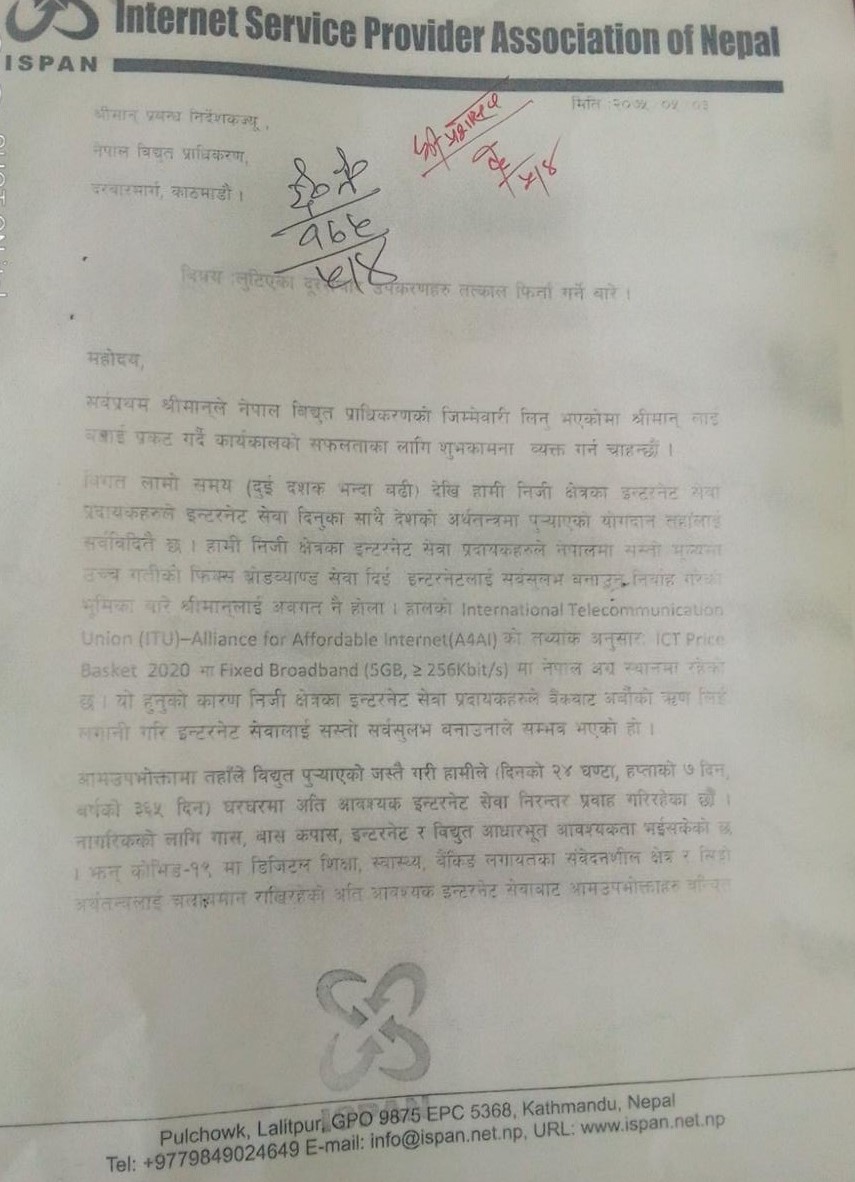 Internet Service Provider Association of Nepal
ISPAN
श्रीमान् प्रबन्ध निर्देशकज्यू,
नेपाल विद्युत प्राधिकरण,
दरबारमार्ग, काठमाडौं ।
विषय :लुटिएका उपकरणहरु तत्काल फिर्ता गर्ने बारे ।
महोदय,
सर्वप्रथम श्रीमान्‌ले नेपाल विद्युत प्राधिकरणको जिम्मेवारी लिनु भएकोमा श्रीमान् लाई
बधाई प्रकट गर्दै कार्यकालको सफलताका लागि शुभकामना व्यक्त गर्न चाहन्छौं ।
विगत लामो समय (दुई दशक भन्दा बढी) देखि हामी निजी क्षेत्रका इन्टरनेट सेवा
प्रदायकहरुले इन्टरनेट सेवा दिनुका साथै देशको अर्थतन्त्रमा पुऱ्याएको योगदान तहाँलाई
सर्वविदितै छ । हामी निजी क्षेत्रका इन्टरनेट सेवा प्रदायकहरुले नेपालमा सस्तो मूल्यमा
उच्च गतीको फिक्स ब्रोडव्याण्ड सेवा दिई इन्टरनेटलाई सर्वसुलभ बनाउन निर्वाह गरेको
भूमिका बारे श्रीमान्‌लाई अवगत नै होला । हालको International Telecommunication
Union (ITU)–Alliance for Affordable Internet(A4AI) को तथ्यांक अनुसार ICT Price
Basket 2020 मा Fixed Broadband (5GB, ≥ 256Kbit/s) मा नेपाल अग्र स्थानमा रहेको
छ । यो हुनुको कारण निजी क्षेत्रका इन्टरनेट सेवा प्रदायकहरुले बैंकबाट अर्बौको ऋण लिई
लगानी गरि इन्टरनेट सेवालाई सस्तो सर्वसुलभ बनाउनाले सम्भव भएको हो ।
आमउपभोक्तामा तहाँले विद्युत पुऱ्याएको जस्तै गरी हामीले (दिनको २४ घण्टा, हप्ताको ७ दिन,
बर्षको ३६५ दिन) घरघरमा अति आवश्यक इन्टरनेट सेवा निरन्तर प्रवाह गरिरहेका छौं ।
नागरिकको लागि गास, बास कपास, इन्टरनेट र विद्युत आधारभूत आवश्यकता भईसकेको छ
। झन् कोभिड-१९ मा डिजिटल शिक्षा, स्वास्थ्य, बैंकिङ लगायतका संवेदनशील क्षेत्र र सिङ्गो
अर्थतन्त्रलाई चलायमान राखिरहेको अति आवश्यक इन्टरनेट सेवाबाट आमउपभोक्ताहरु बञ्चित
ISPAN
Pulchowk, Lalitpur, GPO 9875 EPC 5368, Kathmandu, Nepal
Tel: +9779849024649 E-mail: info@ispan.net.np, URL: www.ispan.net.np